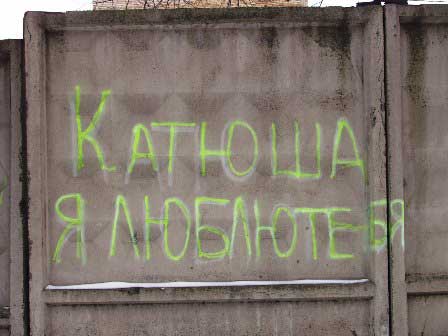 КАТЮША
Я ЛЮБЛЮТЕБЯ